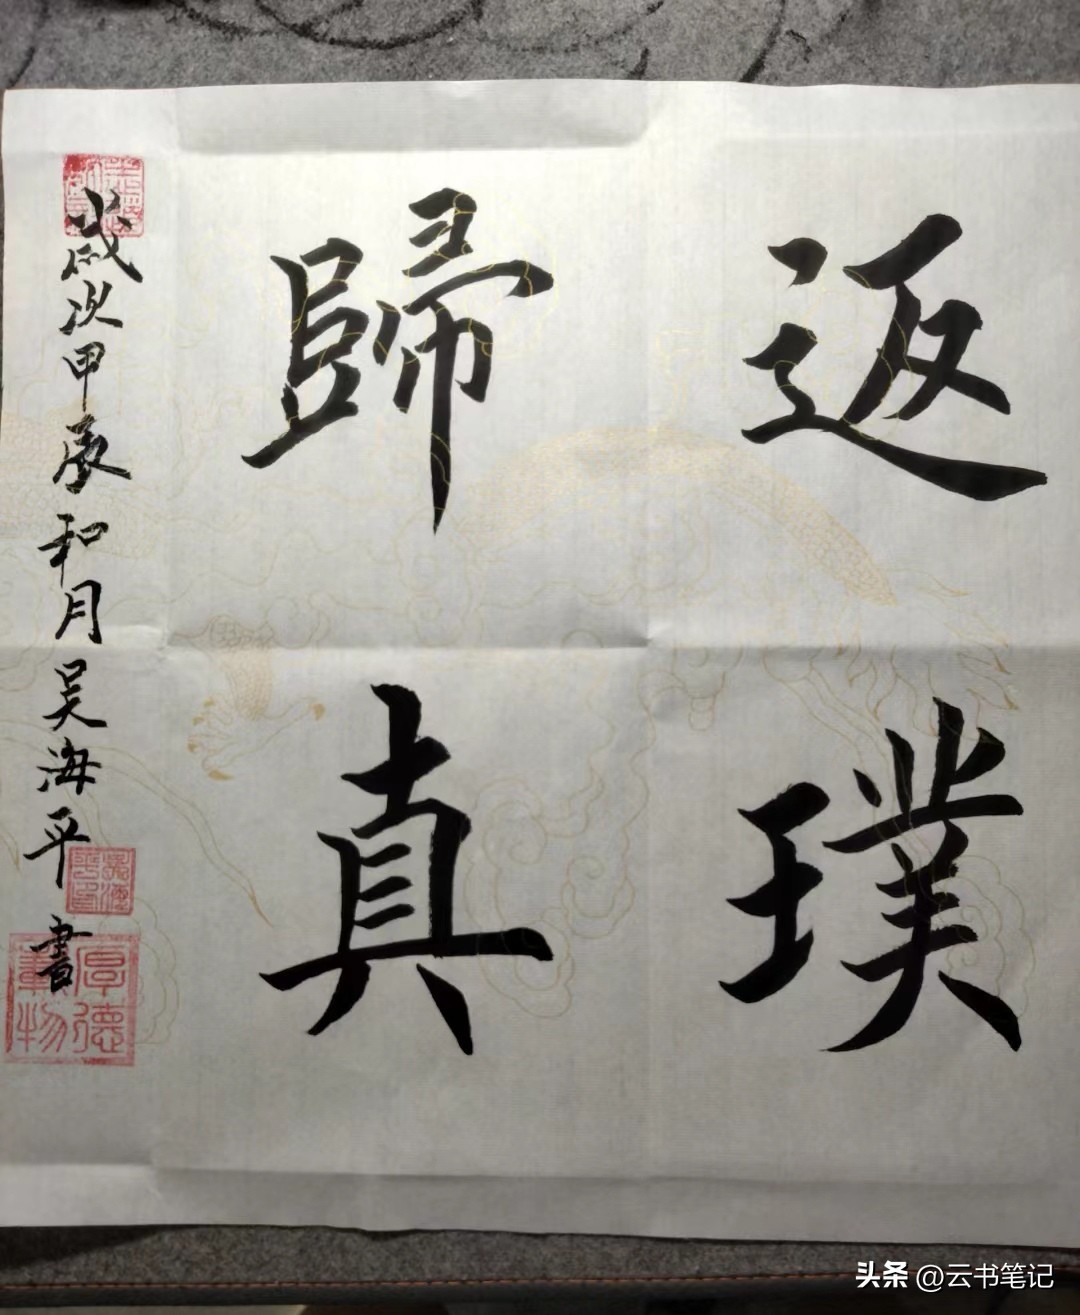 返璞
歸真
歲次甲辰和月吴海平書
吴海平印
厚德載物
头条 @云书笔记